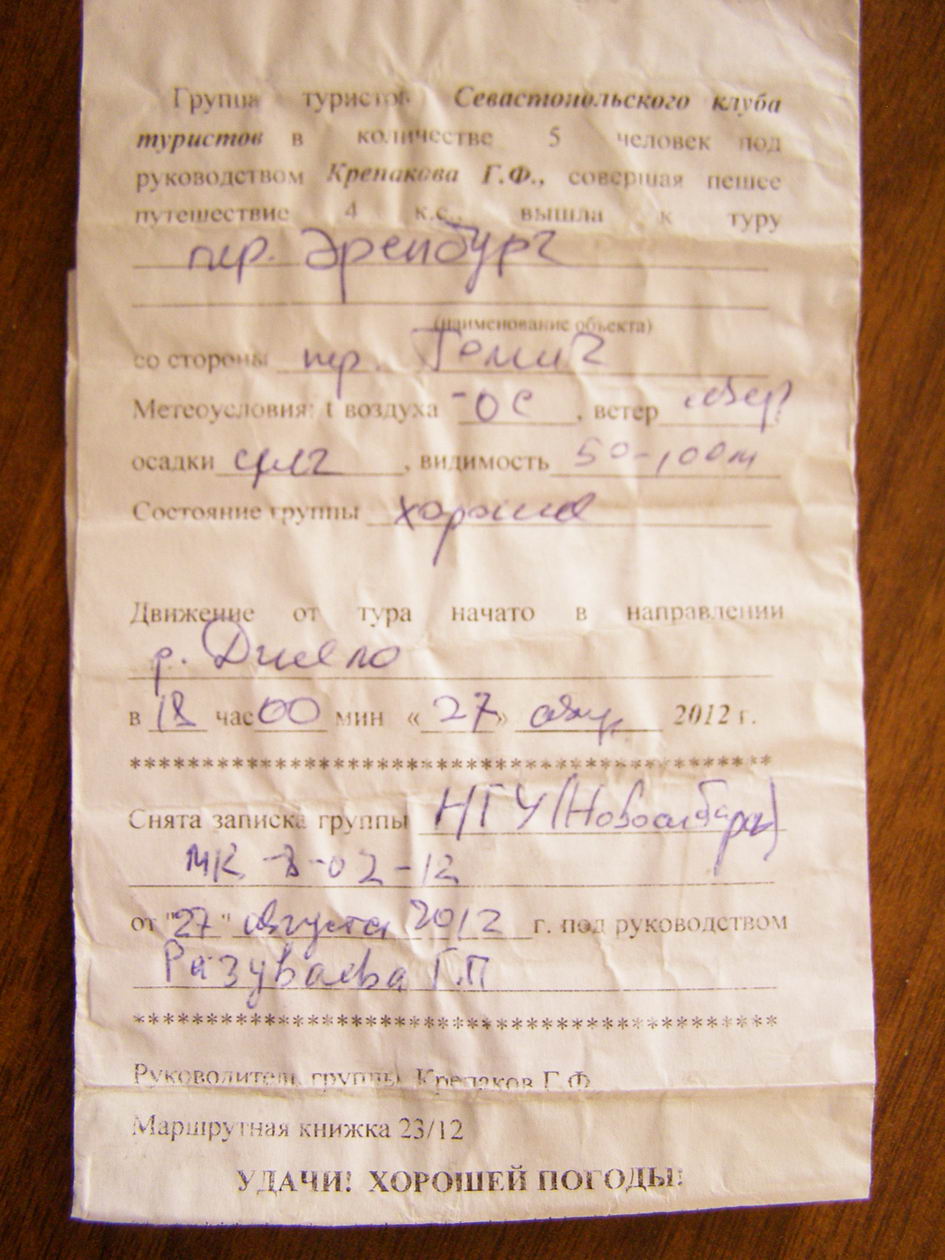 Группа туристов Севастопольского клуба
туристов в количестве 5 человек под
руководством Крепакова Г.Ф., совершая пешее
путешествие 4 к.с., вышла к туру
пер. Эренбург
(наименование объекта)
со стороны пер.
Метеоусловия: t воздуха -0С, ветер
осадки снег, видимость 50-100м
Состояние группы хорошее
Движение от тура начато в направлении
р.
в 18 час 00 мин «27» авг. 2012 г.
*********************************************
Снята записка группы НГУ (Новосибирск)
МК -02-12
от "27" августа 2012 г. под руководством
Разуваева Г.П
*********************************************
Руководитель группы Крепаков Г.Ф
Маршрутная книжка 23/12
УДАЧИ! ХОРОШЕЙ ПОГОДЫ!